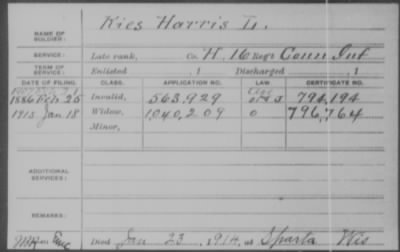 NAME OF SOLDIER: Kies Harris L.
SERVICE: Late rank, Co. H, 16 Reg't Conn Inf
TERM OF SERVICE: Enlisted , 1 Discharged , 1
DATE OF FILING. CLASS. APPLICATION NO. LAW. CERTIFICATE NO.
1886 Feb 25 Invalid, 563,929 794,194
1915 Jan 18 Widow, 1,040,209 0 796,764
Minor,
ADDITIONAL SERVICES:
REMARKS:
Died Jan 23, 1914, at Sparta Wis